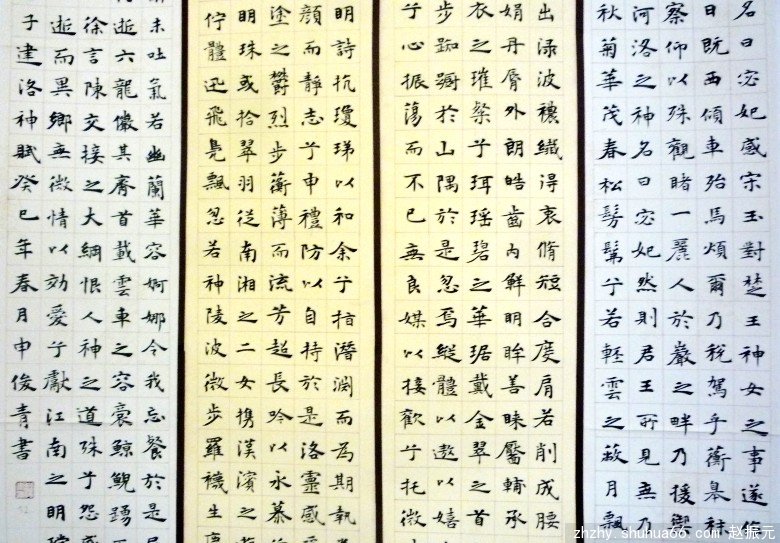 名曰宓妃感宋玉對楚王神女之事遂
日既西傾車殆馬煩爾乃稅駕乎蘅皋秣
察仰以殊觀睹一麗人於巖之畔乃援御
河洛之神名曰宓妃然則君王所見無乃
秋菊華茂春松髣髴兮若輕雲之蔽月飄
出淥波襛纖得衷脩短合度肩若削成腰
娟丹脣外朗皓齒內鮮明眸善睞靨輔承
衣之璀粲兮珥瑤碧之華琚戴金翠之首
步踟躕於山隅於是忽焉縱體以遨以嬉
兮心振蕩而不已無良媒以接歡兮托微
明詩抗瓊珶以和余兮指潛淵而為期執
顏而靜志兮申禮防以自持於是洛靈感
塗之鬱烈步蘅薄而流芳超長吟以永慕
明珠或拾翠羽從南湘之二女携漢濱之
佇體迅飛鳧飄忽若神陵波微步羅襪生
未吐氣若幽蘭華容婀娜令我忘餐於是
逝六龍儼其齊首載雲車之容裔鯨鯢踴
徐言陳交接之大綱恨人神之道殊兮怨
逝而異鄉無微情以効愛兮獻江南之明
子建洛神賦癸巳年春月申俊青書
zhzhy.shuhua66.com 赵振元